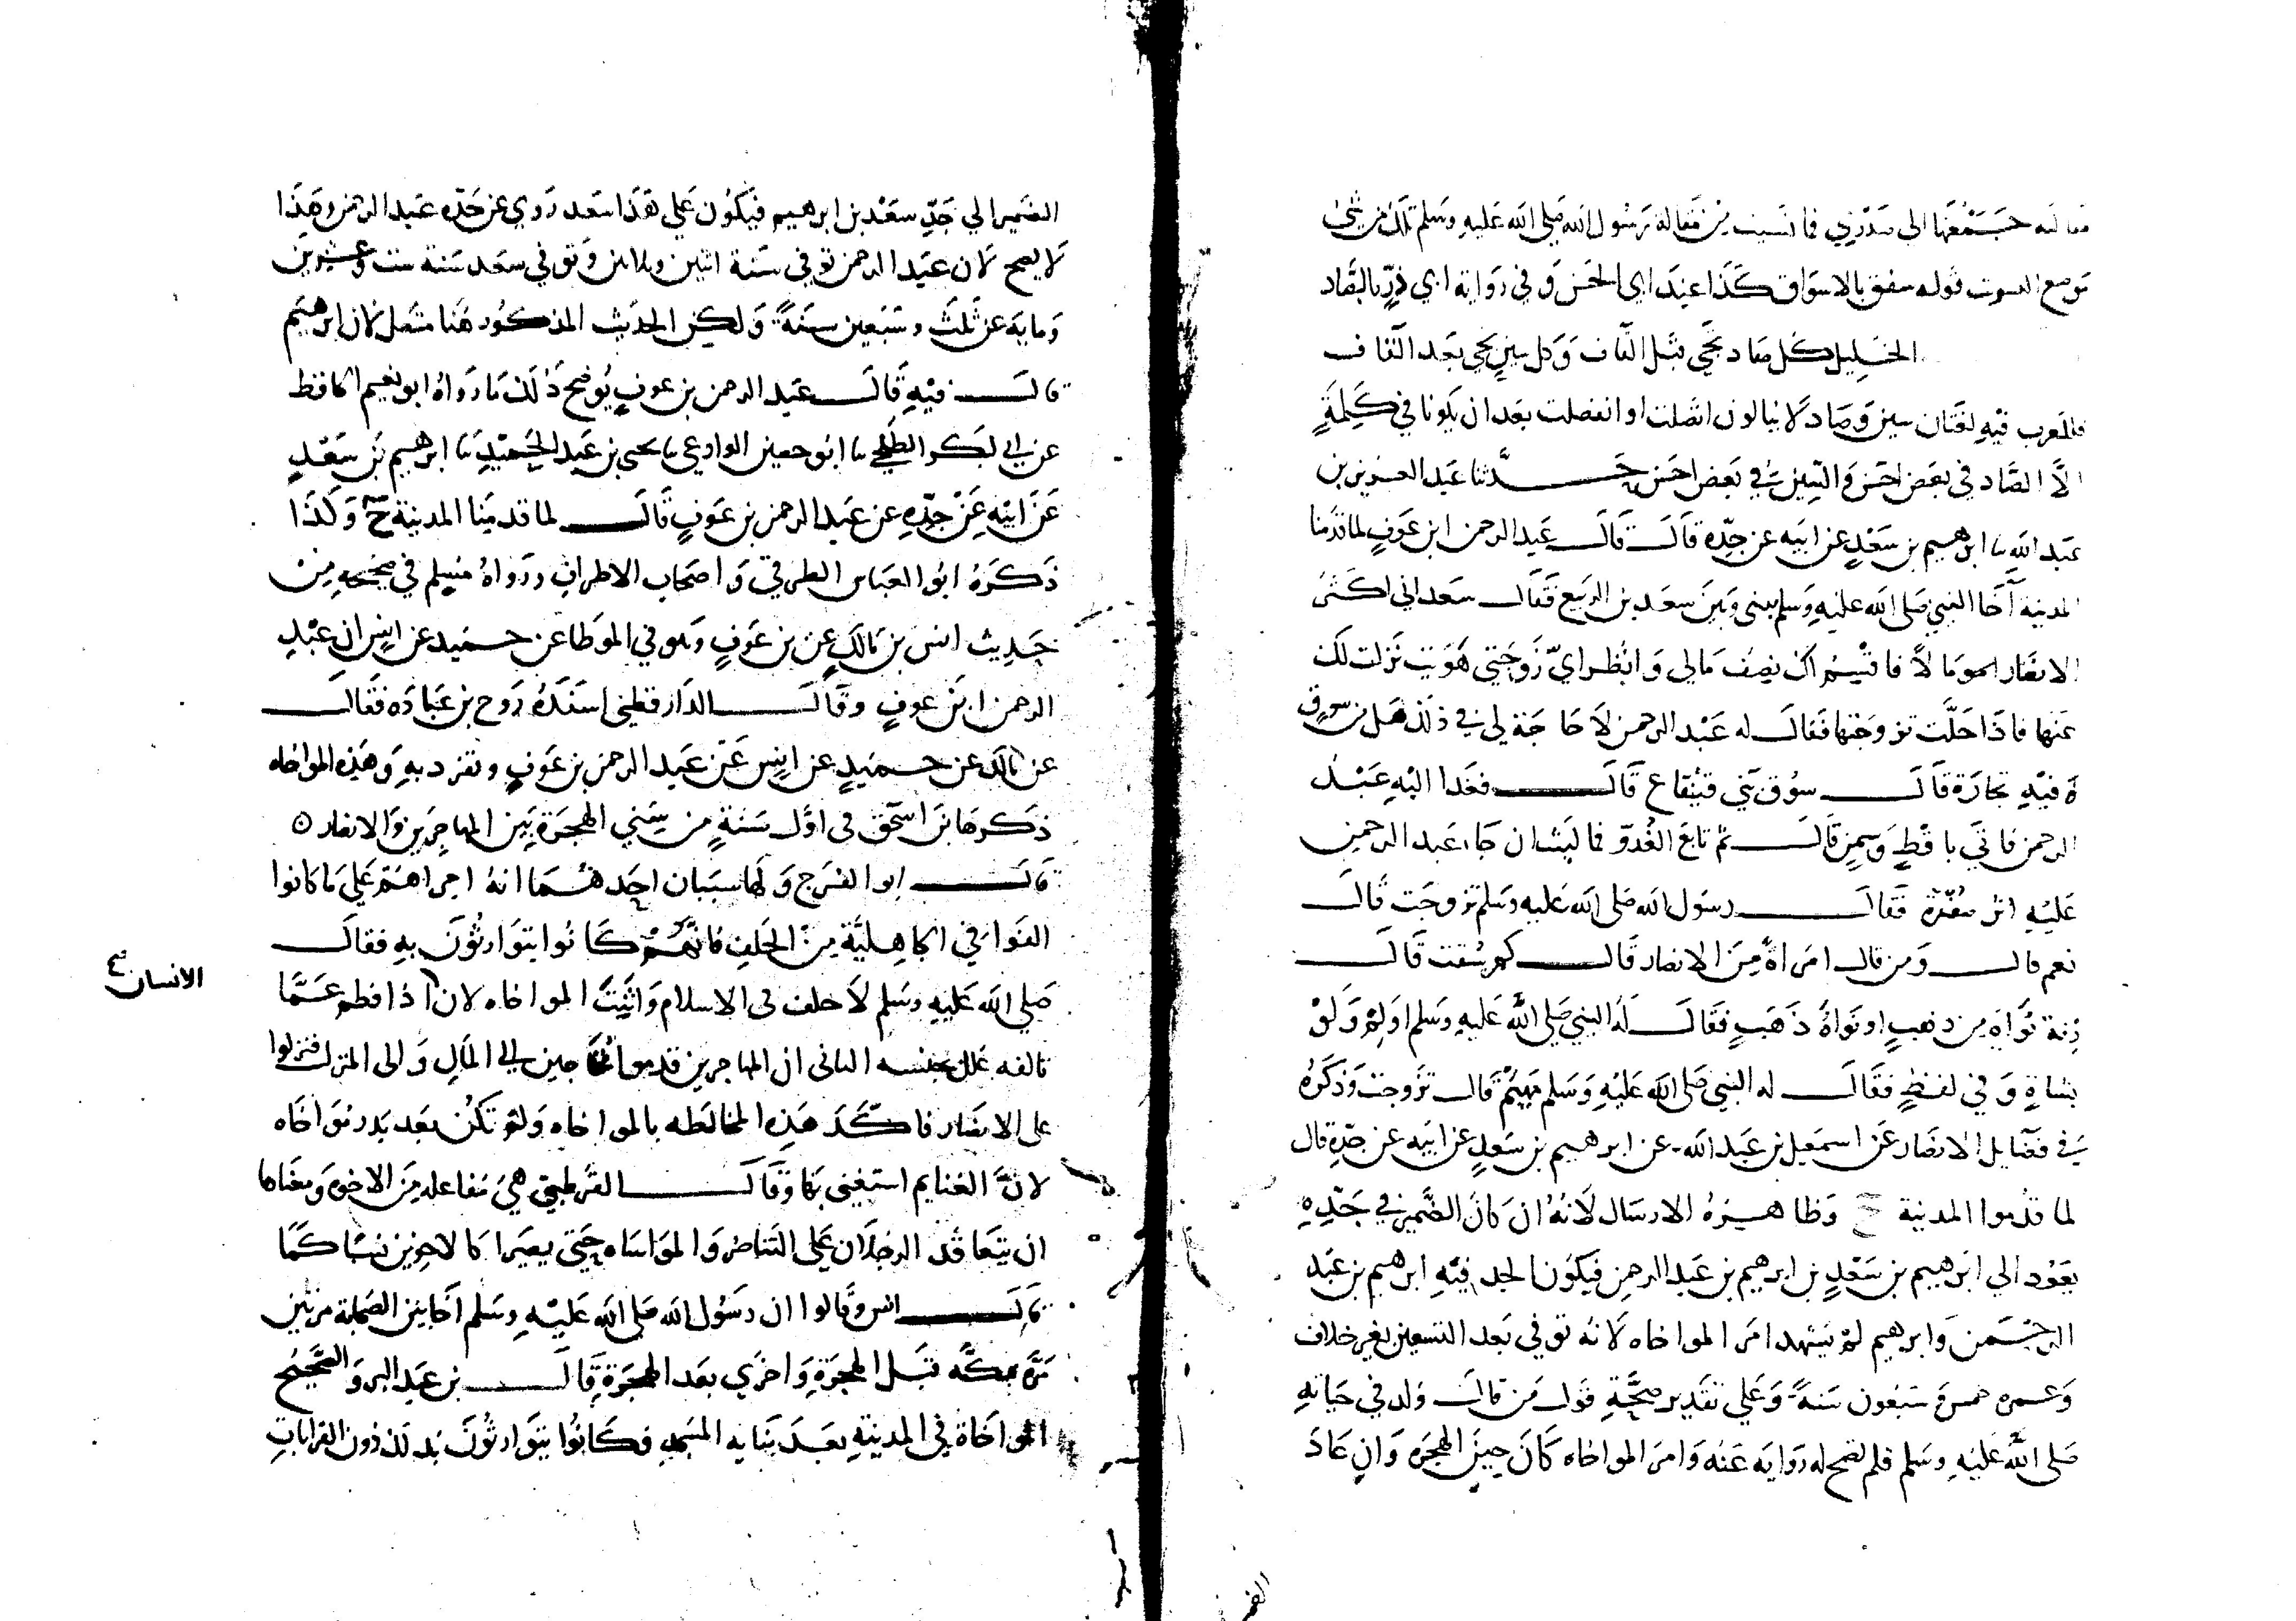 مقالته جمعتها الى صدري فما نسيت من مقالة رسول الله صلى الله عليه وسلم تلك من شي
موضع السوت قوله سفق بالاسواق كذا عند ابي الحسن وفي رواية ابي ذر بالصاد
الخليل كل صاد تجي قبل القاف وكل سين تجي بعد القاف
فللعرب فيه لغتان سين وصاد لا يبالون اتصلت او انفصلت بعد ان يكونا في كلمة
الا الصاد في بعض احسن والسين في بعض احسن حدثنا عبد العزيز بن
عبد الله ثنا ابرهيم بن سعد عن ابيه عن جده قال قال عبد الرحمن ابن عوف لما قدمنا
المدينة آخا النبي صلى الله عليه وسلم بيني وبين سعد بن الربيع فقال سعد اني اكثر
الانصار مالا فاقسم لك نصف مالي وانظر اي زوجتي هويت نزلت لك
عنها فاذا حلت تزوجتها فقال له عبد الرحمن لا حاجة لي في ذلك هل من سوق
فيه تجارة قال سوق بني قينقاع قال فغدا اليه عبد
الرحمن فاتي باقط وسمن قال ثم تابع الغدو فما لبث ان جاء عبد الرحمن
عليه اثر صفرة فقال رسول الله صلى الله عليه وسلم تزوجت قال
نعم قال ومن قال امراة من الانصار قال كم سقت قال
زنة نواة من ذهب او نواة ذهب فقال له النبي صلى الله عليه وسلم اولم ولو
بشاة وفي لفظ فقال له النبي صلى الله عليه وسلم مهيم قال تزوجت وذكره
في فضايل الانصار عن اسمعيل بن عبد الله عن ابرهيم بن سعد عن ابيه عن جده قال
لما قدموا المدينة ح وظاهره الارسال لانه ان كان الضمير في جده
يعود الي ابرهيم بن سعد بن ابرهيم بن عبد الرحمن فيكون الجد فيه ابرهيم بن عبد
الرحمن وابرهيم لم يشهد امر المواخاه لانه توفي بعد التسعين بغير خلاف
وعمره خمس وسبعون سنة وعلي تقدير صحة قول من قال ولد في حياته
صلى الله عليه وسلم فلم تصح له رواية عنه وامر المواخاه كان حين الهجرة وان عاد
الضمير الي جد سعد بن ابرهيم فيكون علي هذا سعد روي عن جده عبد الرحمن وهذا
لا يصح لان عبد الرحمن توفي سنة اثنين وثلاثين وتوفي سعد سنة ست وعشرين
وماية عن ثلث وسبعين سنة ولكن الحديث المذكور هنا متصل لان ابرهيم
قال فيه قال عبد الرحمن بن عوف يوضح ذلك ما رواه ابو نعيم الحافظ
عن ابي بكر الطلحي ثنا ابو حصين الوادعي ثنا يحيي بن عبد الحميد ثنا ابرهيم بن سعد
عن ابيه عن جده عن عبد الرحمن بن عوف قال لما قدمنا المدينة ح وكذا
ذكره ابو العباس الطرقي واصحاب الاطراف ورواه مسلم في صحيحه من
حديث انس بن مالك عن بن عوف وهو في الموطا عن حميد عن انس ان عبد
الرحمن ابن عوف وقال الدارقطني اسنده روح بن عباده فقال
عن مالك عن حميد عن انس عن عبد الرحمن بن عوف وتفرد به وهذه المواخاه
ذكرها بن اسحق في اول سنة من سني الهجرة بين المهاجرين والانصار ه
قال ابو الفرج ولها سببان احدهما انه اجراهم علي ما كانوا
الفوا في الجاهلية من الحلف فانهم كانوا يتوارثون به فقال
صلي الله عليه وسلم لا حلف في الاسلام واثبت المواخاه لان اذا فطم عما
الانسان صح
يالفه علل بجنسه الثاني ان المهاجرين قدموا محتاجين الي المال والى المنزل فنزلوا
على الانصار فاكد هذه المخالطه بالمواخاه ولم تكن بعد بدر مواخاه
لان الغنايم استغني بها وقال القرطبي هي مفاعله من الاخوة ومعناها
ان يتعاقد الرجلان علي التناصر والمواساه حتي يصيرا كالاخوين نسبا كما
قال انس وقالوا ان رسول الله صلى الله عليه وسلم آخا بين الصحابة مرتين
مرة بمكه قبل الهجرة واخري بعد الهجرة قال بن عبد البر والصحيح
المواخاة في المدينة بعد بنايه المسجد فكانوا يتوارثون بذلك دون القرابات